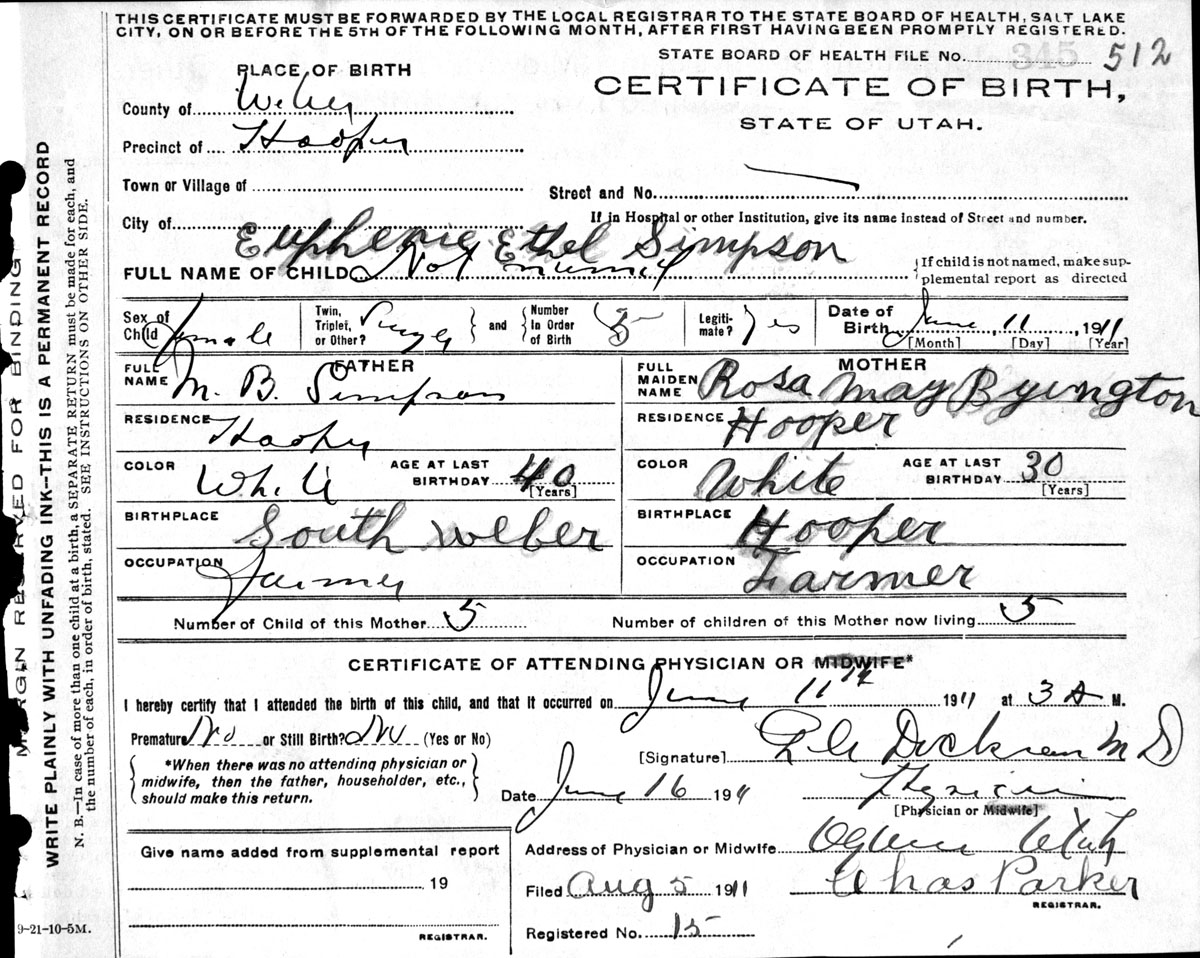 THIS CERTIFICATE MUST BE FORWARDED BY THE LOCAL REGISTRAR TO THE STATE BOARD OF HEALTH, SALT LAKE
CITY, ON OR BEFORE THE 5TH OF THE FOLLOWING MONTH, AFTER FIRST HAVING BEEN PROMPTLY REGISTERED.
STATE BOARD OF HEALTH FILE NO. 345 512
PLACE OF BIRTH
CERTIFICATE OF BIRTH,
STATE OF UTAH.
County of Weber
Precinct of Hooper
Town or Village of
Street and No.
City of
If in Hospital or other Institution, give its name instead of Street and number.
Euphenie Ethel Simpson
FULL NAME OF CHILD Not
If child is not named, make sup-
plemental report as directed
Sex of Child female
Twin, Triplet, or Other? Single and Number In Order of Birth 5
Legiti-mate? Yes
Date of Birth June 11, 1911
[Month] [Day] [Year]
FATHER
FULL NAME M. B. Simpson
MOTHER
FULL MAIDEN NAME Rosa May Byington
RESIDENCE Hooper
RESIDENCE Hooper
COLOR White AGE AT LAST BIRTHDAY 40 [Years]
COLOR White AGE AT LAST BIRTHDAY 30 [Years]
BIRTHPLACE South Weber
BIRTHPLACE Hooper
OCCUPATION Farmer
OCCUPATION Farmer
Number of Child of this Mother 5
Number of children of this Mother now living 5
CERTIFICATE OF ATTENDING PHYSICIAN OR MIDWIFE*
I hereby certify that I attended the birth of this child, and that it occurred on June 11th 1911 at 3 A M.
Premature No or Still Birth? No (Yes or No)
*When there was no attending physician or
midwife, then the father, householder, etc.,
should make this return.
[Signature] M D
Date June 16 1911 Physician
[Physician or Midwife]
Give name added from supplemental report
19
REGISTRAR.
Address of Physician or Midwife Ogden Utah
Filed Aug 5 1911 Chas Parker
REGISTRAR.
Registered No. 15
9-21-10-5M.
MARGIN RESERVED FOR BINDING
WRITE PLAINLY WITH UNFADING INK—THIS IS A PERMANENT RECORD
N. B.—In case of more than one child at a birth, a SEPARATE RETURN must be made for each, and
the number of each, in order of birth, stated. SEE INSTRUCTIONS ON OTHER SIDE.